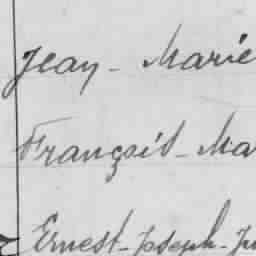 Jean-Marie
François-Ma
Ernest-Joseph-Ju